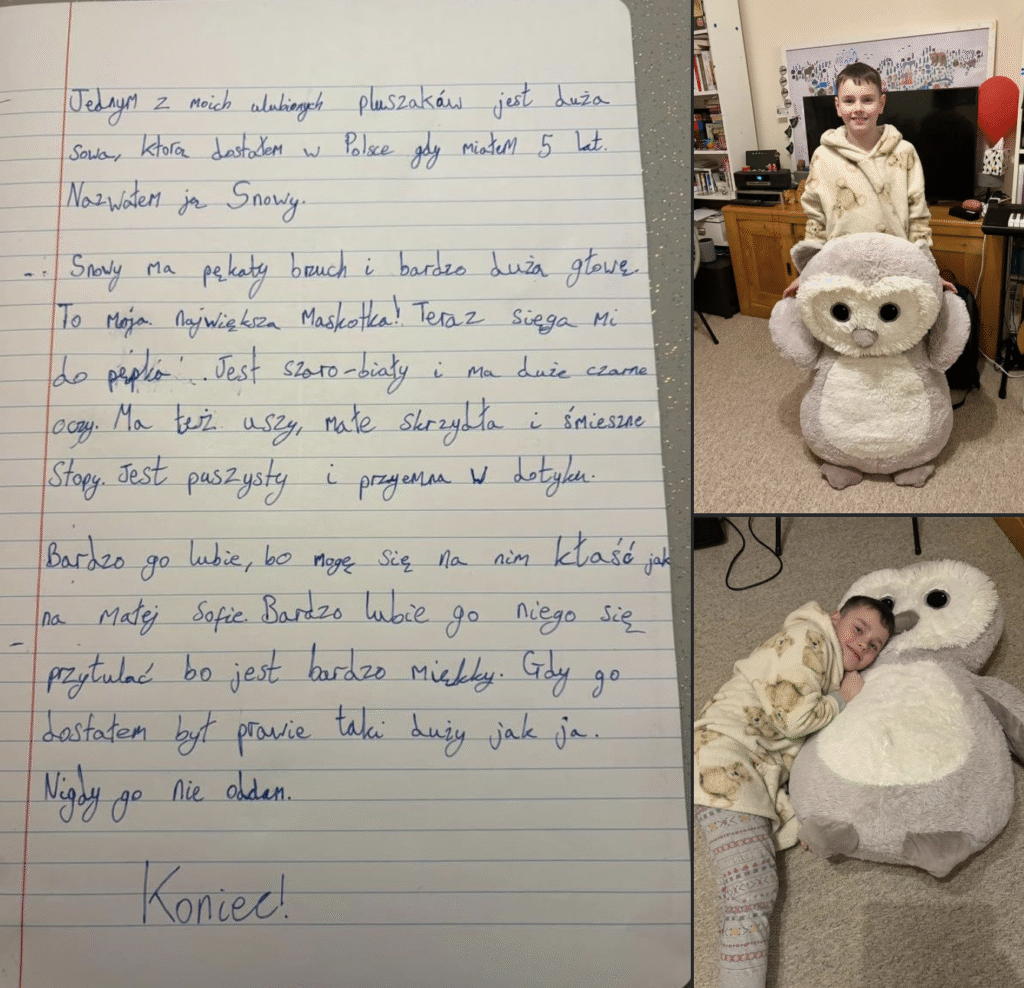 Jednym z moich ulubionych pluszaków jest duża
sowa, ktora dostałem w Polsce gdy miałem 5 lat.
Nazwałem ją Snowy.
Snowy ma pękaty brzuch i bardzo duża głowę.
To moja największa Maskotka! Teraz sięga mi
do pępka. Jest szaro-biały i ma duże czarne
oczy. Ma też uszy, małe skrzydła i śmieszne
stopy. Jest puszysty i przyjemna w dotyku.
Bardzo go lubie, bo mogę się na nim kłaść jak
na małej sofie. Bardzo lubie go niego się
przytulać bo jest bardzo miękky. Gdy go
dostałem był prawie taki duży jak ja.
Nigdy go nie oddam.
Koniec!